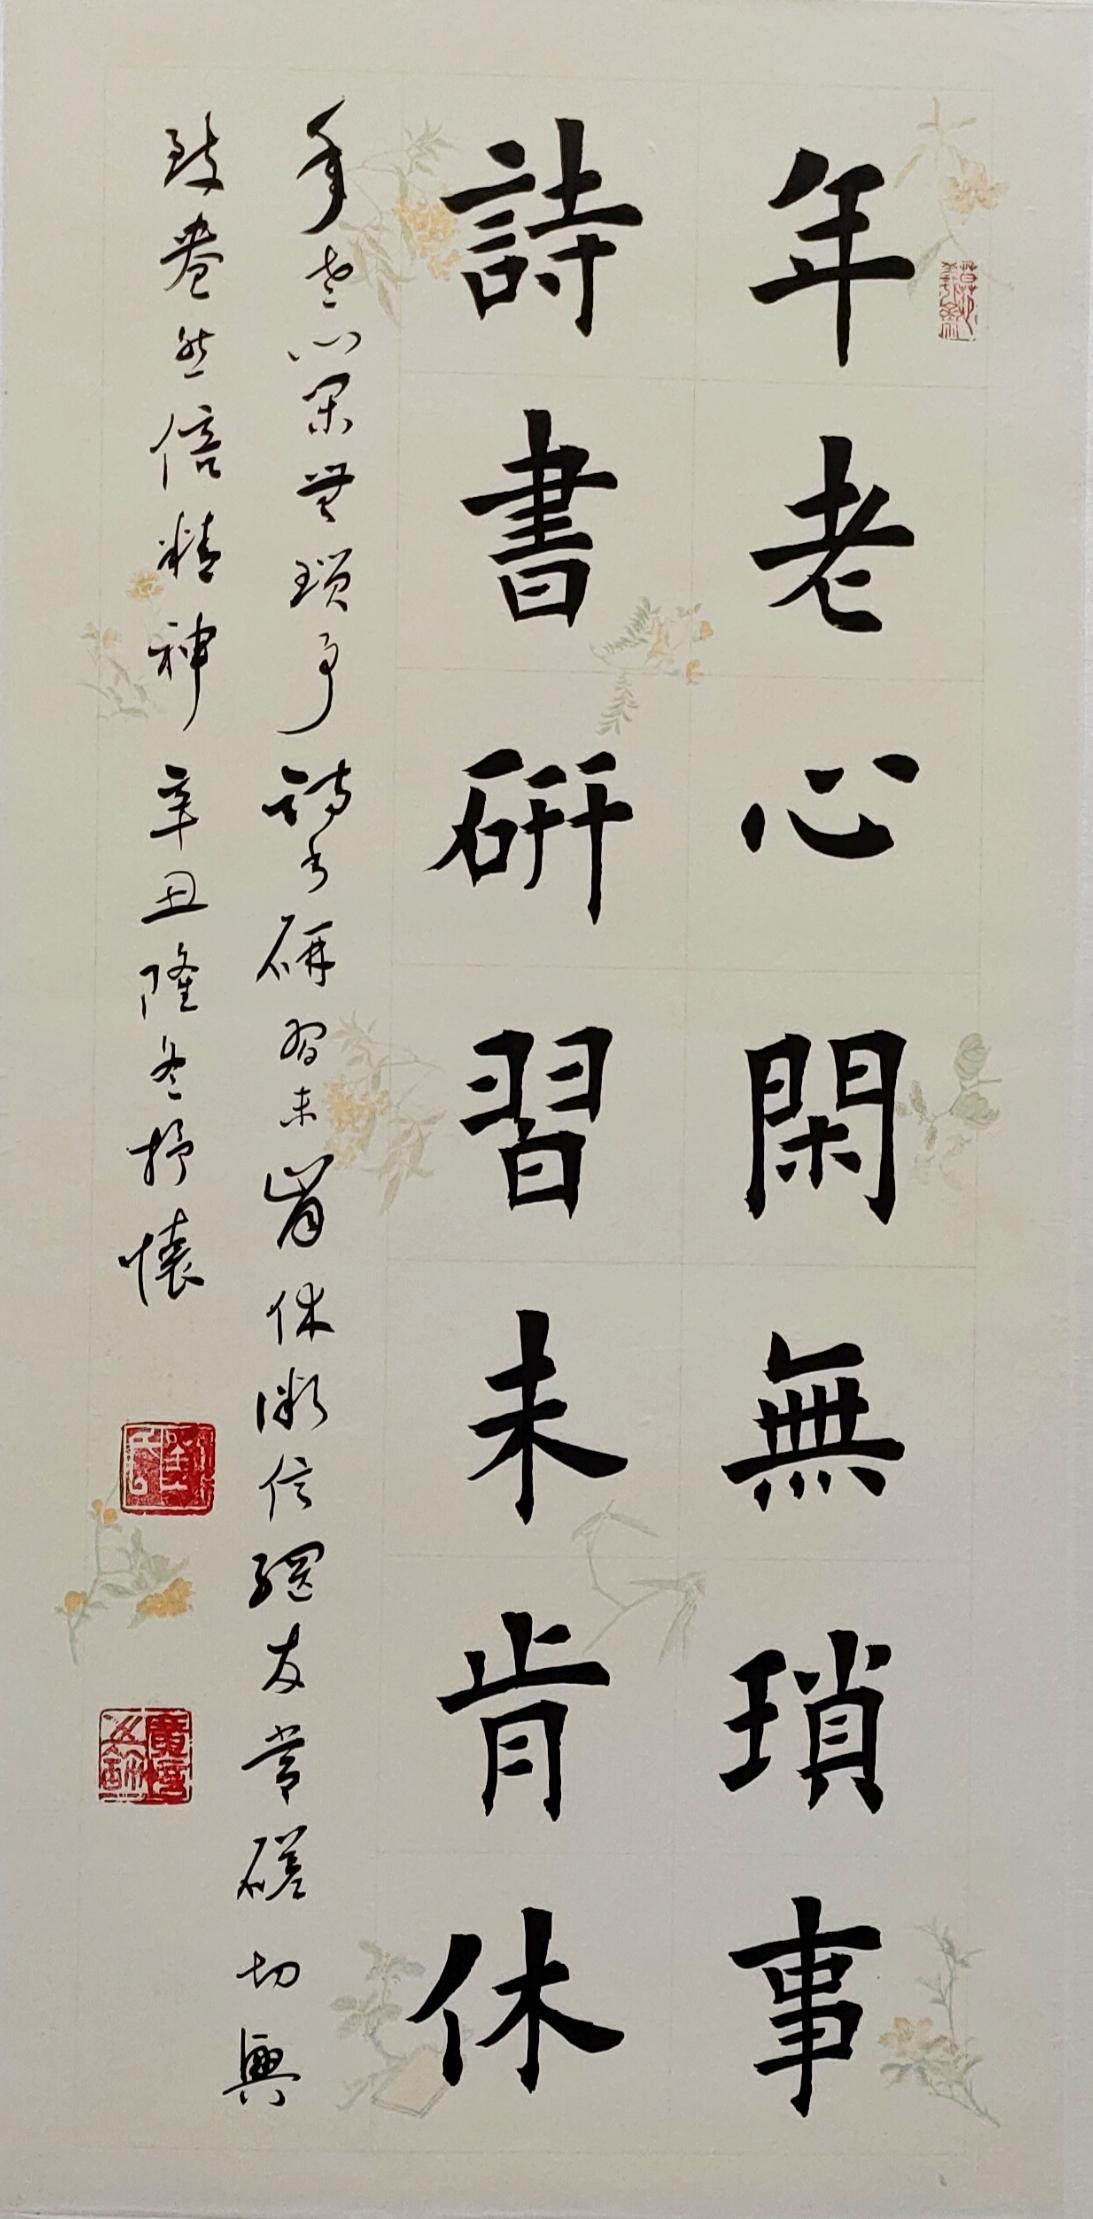 年老心閑無瑣事
詩書研習未肯休
年老心閑無瑣事詩書研習未肯休微信網友常磋切興
致盎然倍精神辛丑隆冬抒懷